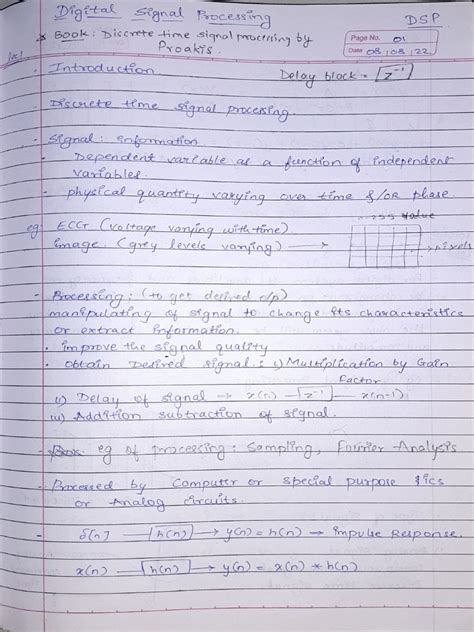 Digital Signal Processing
DSP
* Book: Discrete time signal processing by
Proakis.
Page No. 01
Date 08/08/22
- Introduction
Delay block = [z⁻¹]
- Discrete time signal processing.
- Signal: information
- Dependent variable as a function of independent
variables.
- physical quantity varying over time &/OR phase
eg: ECG (voltage varying with time)
image (grey levels varying) →
255 value
→ pixels
- Processing: (to get desired o/p)
manipulating of signal to change its characteristics
or extract information.
• improve the signal quality
• Obtain Desired signal: i) Multiplication by Gain
Factor
ii) Delay of signal → x(n) —[z⁻¹]— x(n-1)
iii) Addition subtraction of signal.
- eg of processing: Sampling, Fourier Analysis
- Processed by Computer or special purpose ics
or Analog circuits.
- δ(n) —[h(n)]→ y(n) = h(n) → impulse Response.
x(n) —[h(n)]→ y(n) = x(n) * h(n)